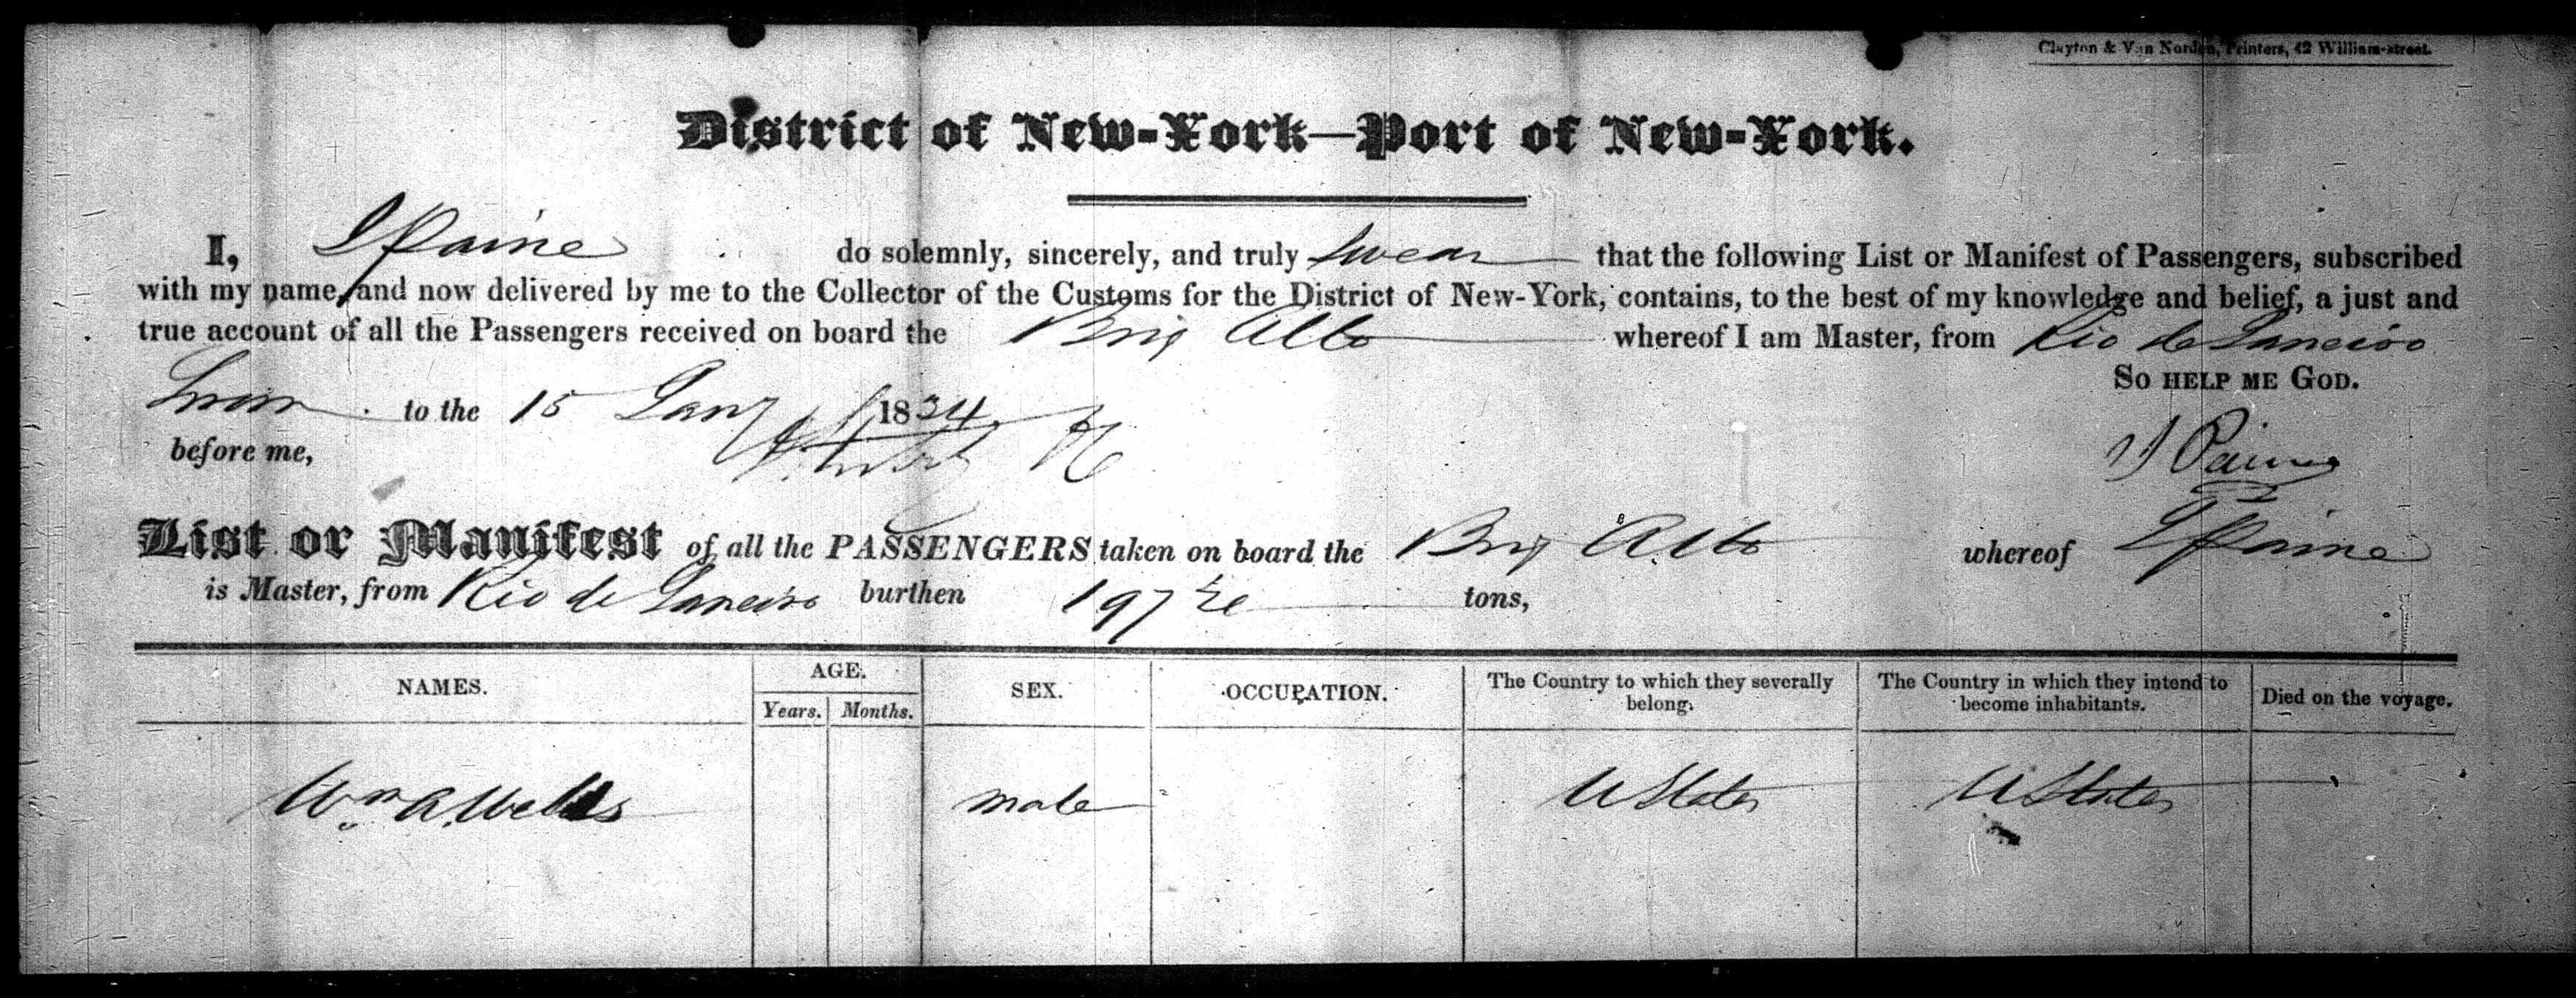 Clayton & Van Norden, Printers, 42 William-street.
District of New-York—Port of New-York.
I, Paine do solemnly, sincerely, and truly swear that the following List or Manifest of Passengers, subscribed
with my name, and now delivered by me to the Collector of the Customs for the District of New-York, contains, to the best of my knowledge and belief, a just and
true account of all the Passengers received on board the Brig Alto whereof I am Master, from Rio de Janeiro
So help me God.
Sworn to the 15 Jany 1834
before me,
Paine
List or Manifest of all the PASSENGERS taken on board the Brig Alto whereof Paine
is Master, from Rio de Janeiro burthen 197 tons,
NAMES. AGE. SEX. OCCUPATION. The Country to which they severally belong. The Country in which they intend to become inhabitants. Died on the voyage.
Years. Months.
Wm A. Wells male U States U States